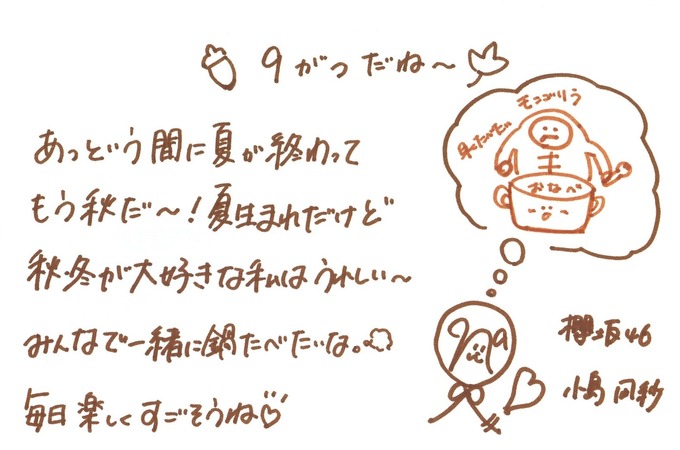 9がつだね〜
あっという間に夏が終わって
もう秋だ〜！夏生まれだけど
秋・冬が大好きな私はうれしい〜
みんなで一緒に鍋たべたいな。
毎日楽しくすごそうね♡
モンゴリラ
早くたべたい
おなべ
櫻坂46
小島凪紗